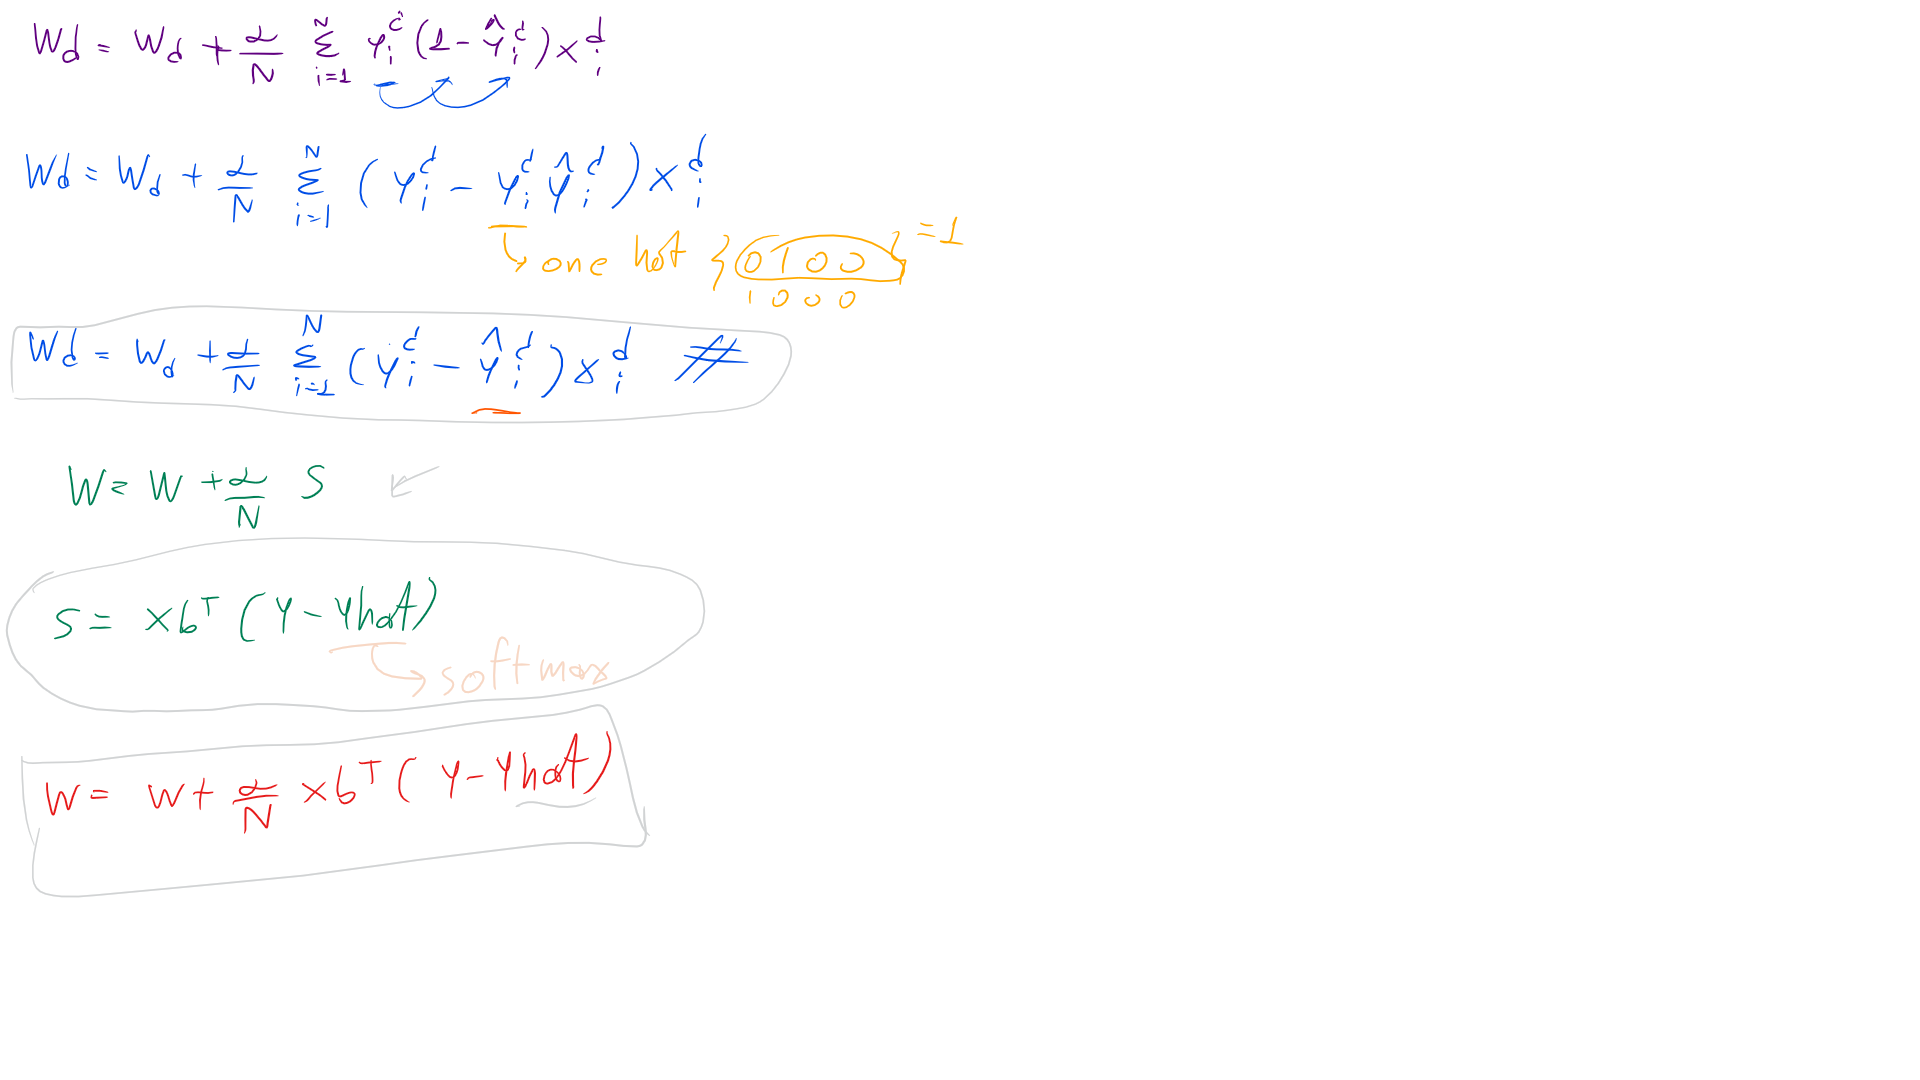 W_d = W_d + α/N Σ_{i=1}^{N} y_i^c (1 - ŷ_i^c) x_i^d
W_d = W_d + α/N Σ_{i=1}^{N} (y_i^c - y_i^c ŷ_i^c) x_i^d
↳ one hot {0 1 0 0} = 1
1 0 0 0
W_d = W_d + α/N Σ_{i=1}^{N} (y_i^c - ŷ_i^c) x_i^d #
W = W + α/N S
S = xb^T (Y - Yhat)
↳ softmax
W = W + α/N xb^T (Y - Yhat)